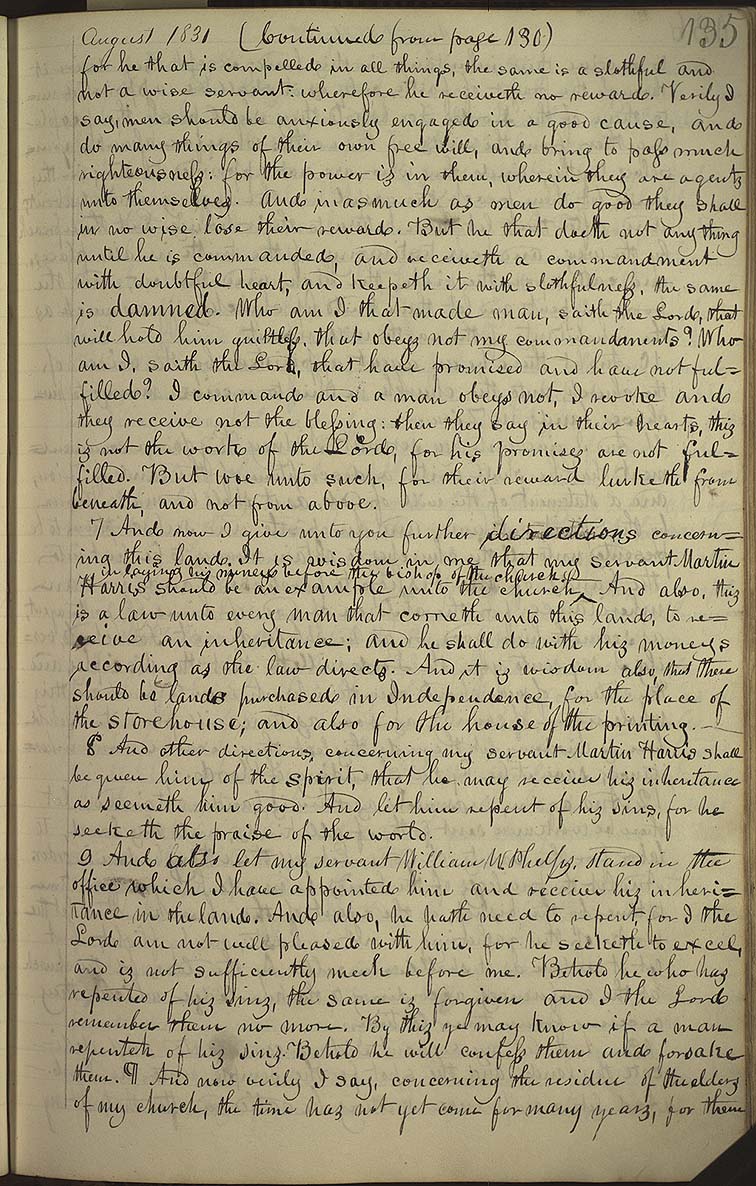 August 1831 (Continued from page 130) 135
for he that is compelled in all things, the same is a slothful and
not a wise servant: wherefore he receiveth no reward. Verily I
say, men should be anxiously engaged in a good cause, and
do many things of their own free will, and bring to pass much
righteousness: for the power is in them, wherein they are agents
unto themselves. And inasmuch as men do good they shall
in no wise lose their reward. But he that doeth not any thing
until he is commanded, and receiveth a commandment
with doubtful heart, and keepeth it with slothfulness, the same
is damned. Who am I that made man, saith the Lord, that
will hold him guiltless, that obeys not my commandments? Who
am I, saith the Lord, that have promised and have not ful=
filled? I command and a man obeys not, I revoke and
they receive not the blessing: then they say in their hearts, this
is not the work of the Lord, for his promises are not ful=
filled. But woe unto such, for their reward lurketh from
beneath, and not from above.
7 And now I give unto you further directions concern=
ing this land. It is wisdom in me that my servant Martin
in laying his moneys before the bishop of the church
Harris should be an example unto the church. And also, this
is a law unto every man that cometh unto this land, to re=
ceive an inheritance; and he shall do with his moneys
according as the law directs. And it is wisdom also, that there
should be lands purchased in Independence, for the place of
the storehouse; and also for the house of the printing.
8 And other directions, concerning my servant Martin Harris shall
be given him of the spirit, that he may receive his inheritance
as seemeth him good. And let him repent of his sins, for he
seeketh the praise of the world.
9 And also let my servant William W. Phelps, stand in the
office which I have appointed him and receive his inheri=
tance in the land. And also, he hath need to repent, for I the
Lord am not well pleased with him, for he seeketh to excel,
and is not sufficiently meek before me. Behold he who has
repented of his sins, the same is forgiven and I the Lord
remember them no more. By this ye may know if a man
repenteth of his sins. Behold he will confess them and forsake
them. ¶ And now verily I say, concerning the residue of the elders
of my church, the time has not yet come for many years, for them